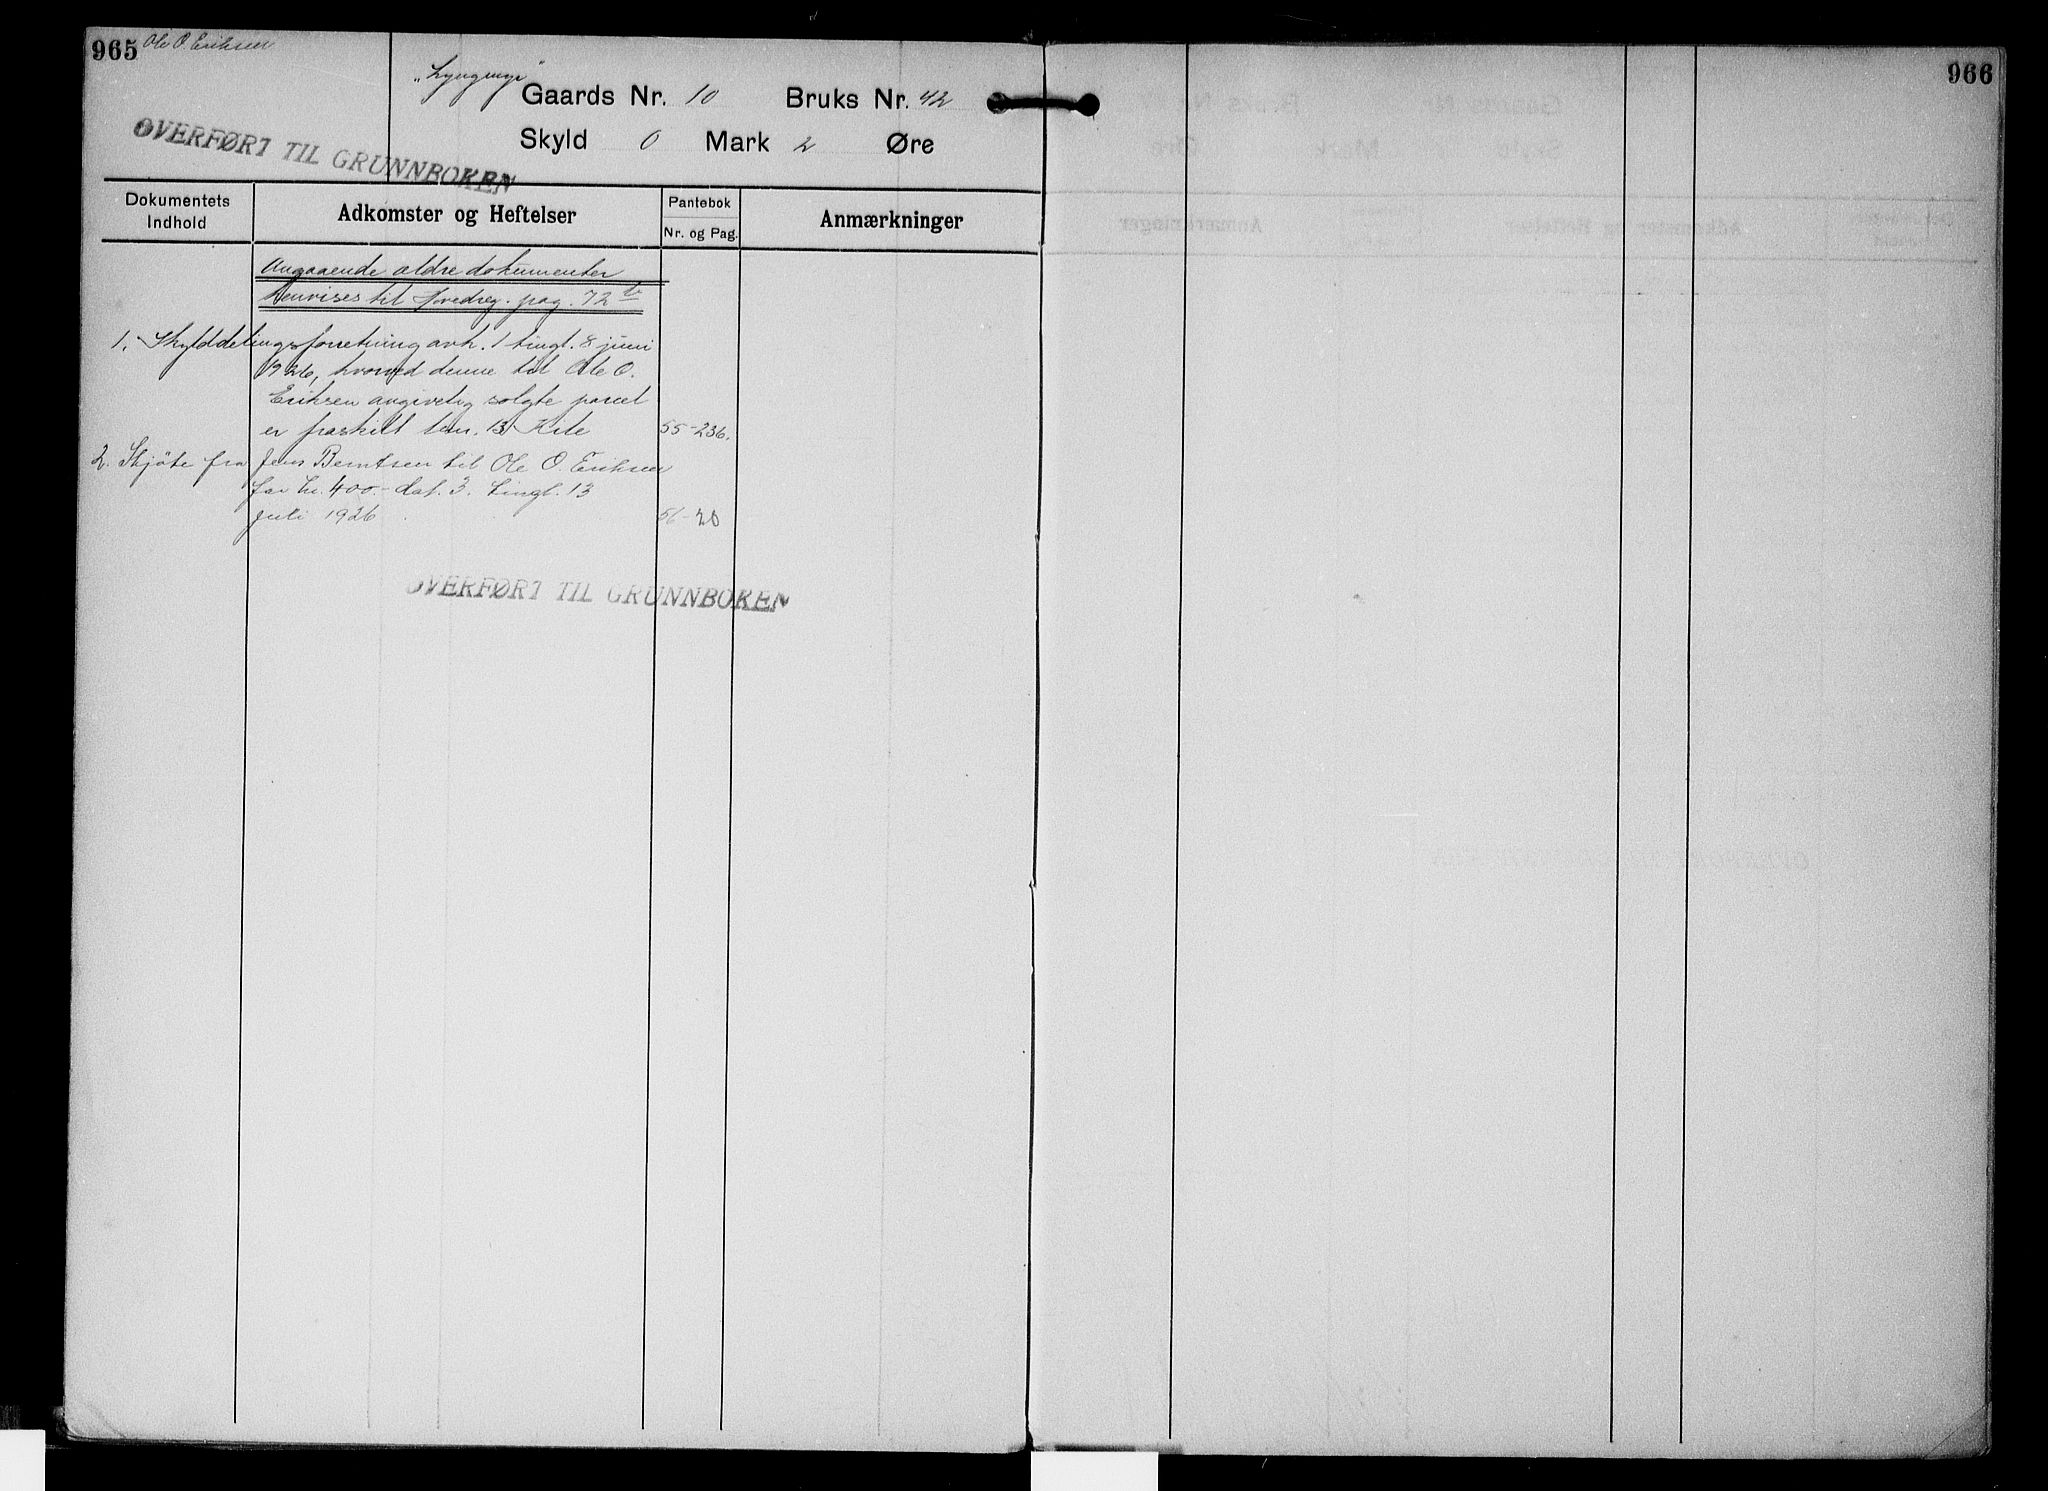 965 Ole O. Eriksen
Gaards Nr. 10 Bruks Nr. 42
Skyld 0 Mark 2 Øre
OVERFØRT TIL GRUNNBOKEN
Dokumentets Indhold
Adkomster og Heftelser
Pantebok
Nr. og Pag.
Anmærkninger
Angaaende ældre dokumenter
henvises til Hovedreg. pag. 72 b
1. Skylddelingsforretning avh. 1 tingl. 8 juni
1926, hvorved denne til Ole O.
Eriksen angivelig solgte parcel
er fraskilt bnr. 13 55-236.
2. Skjøte fra Jens Berntsen til Ole O. Eriksen
for kr. 400.- dat. 3. tingl. 13
juli 1926 56-20
OVERFØRT TIL GRUNNBOKEN
966